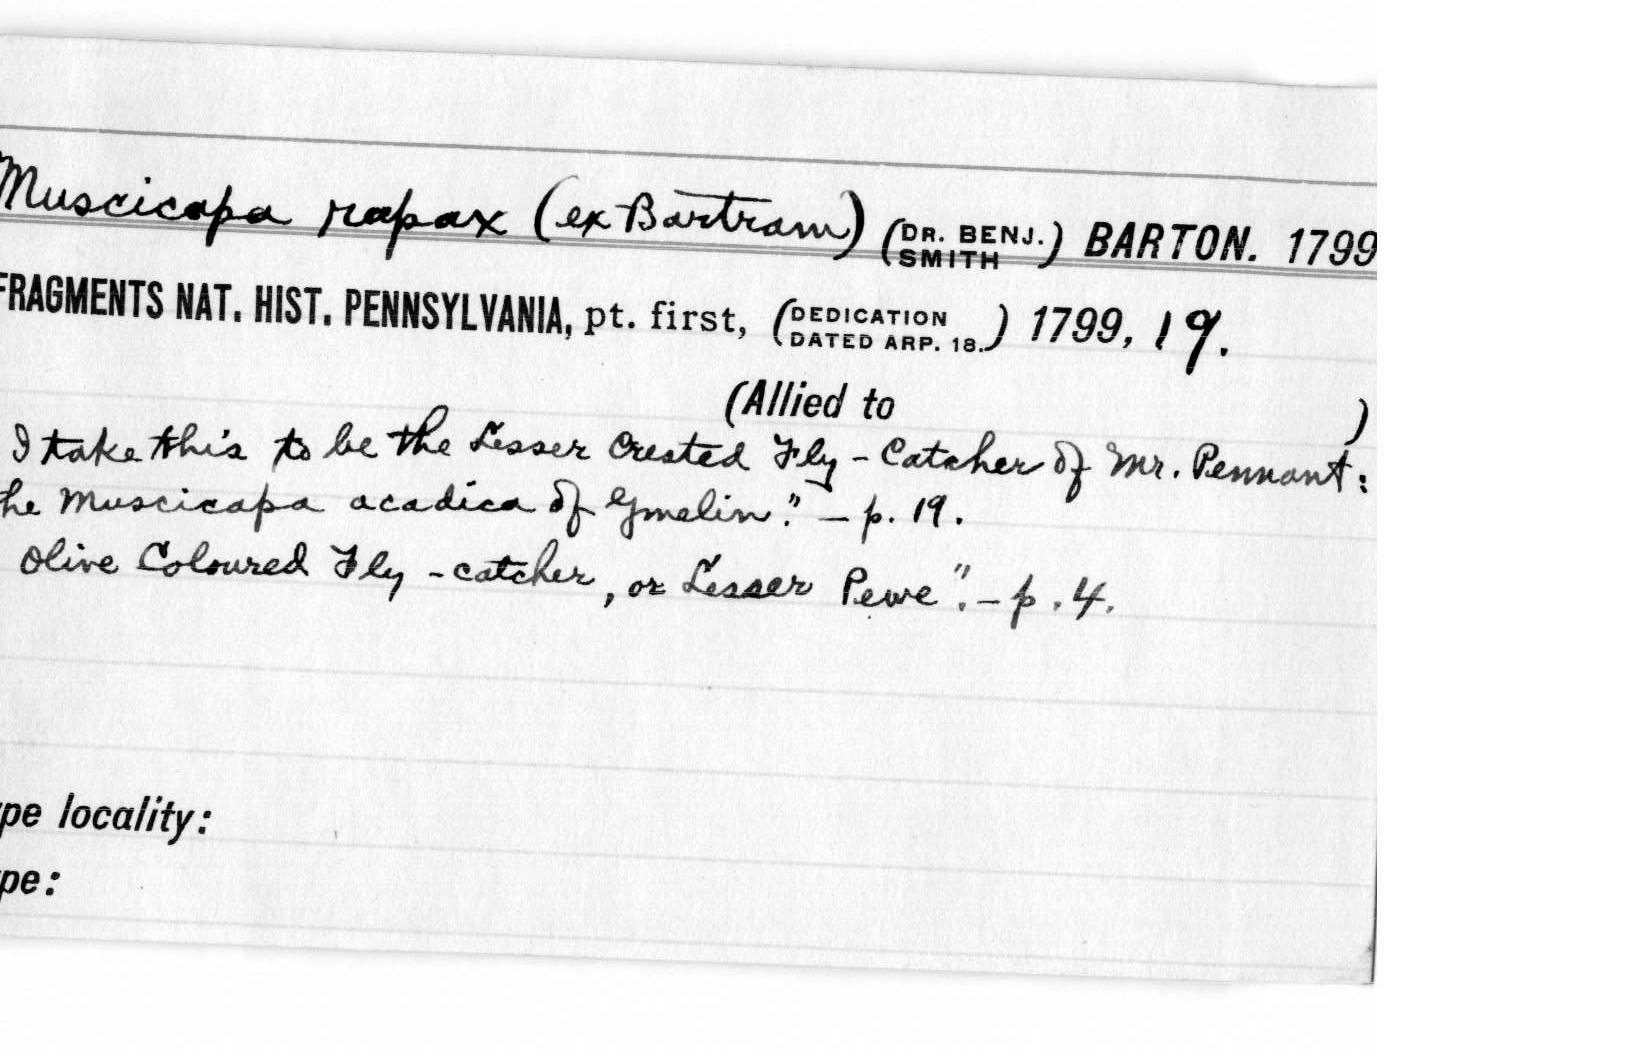 Muscicapa rapax (ex Bartram) (DR. BENJ. SMITH) BARTON. 1799
FRAGMENTS NAT. HIST. PENNSYLVANIA, pt. first, (DEDICATION DATED ARP. 18.) 1799, 19.
(Allied to )
I take this to be the Lesser Crested Fly-Catcher of Mr. Pennant:
he Muscicapa acadica of Gmelin." – p. 19.
Olive Coloured Fly-catcher, or Lesser Pewe". – p. 4.
pe locality:
pe: